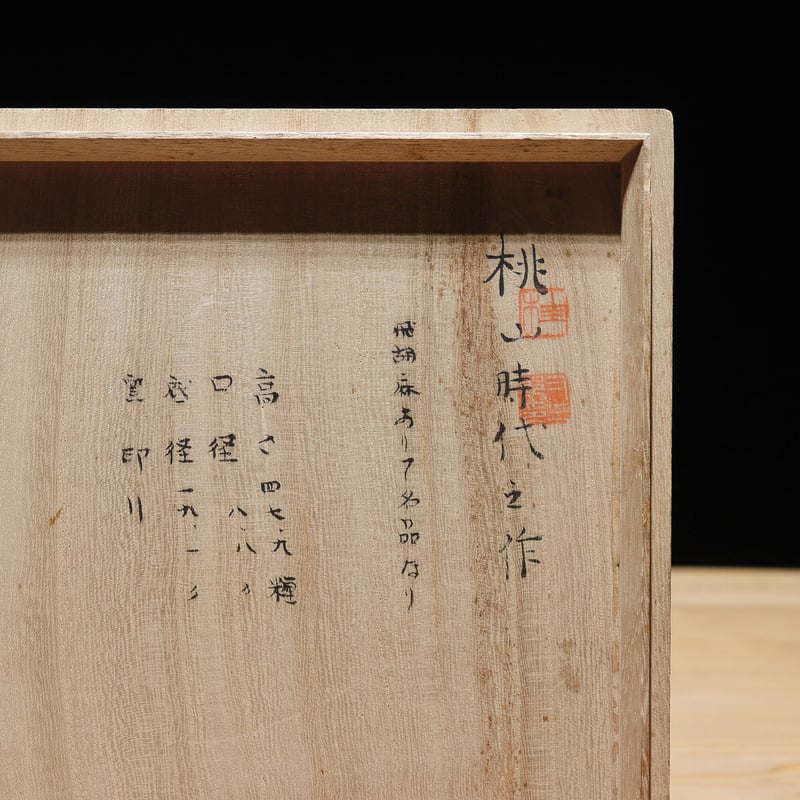 桃山時代之作
飛胡麻ありて名品なり
高さ四七.九糎
口径八.八〃
径一九.一〃
窯印